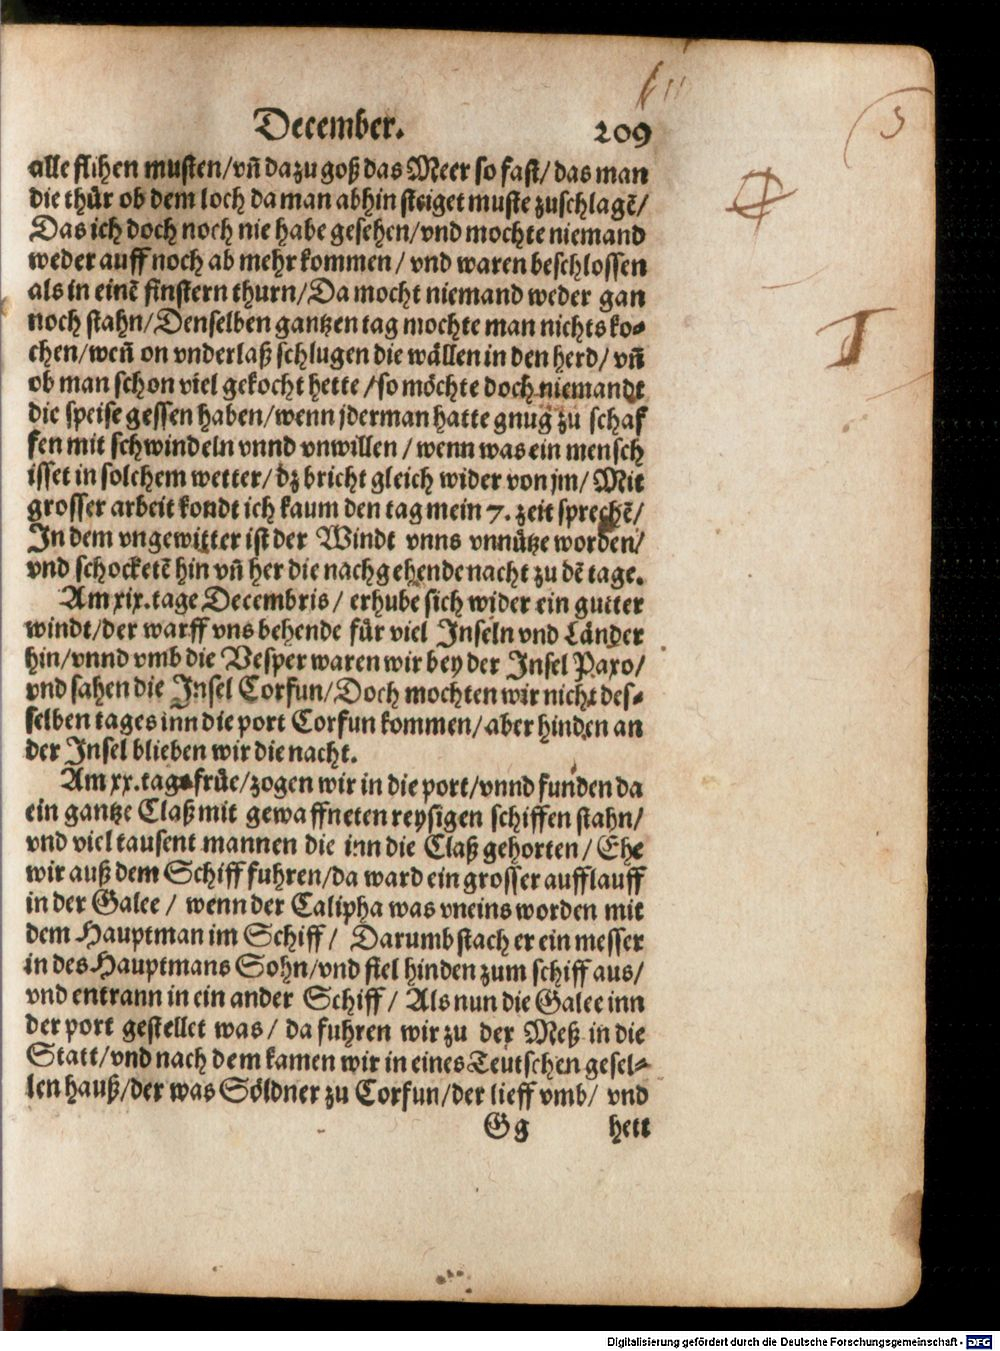 December. 209
alle flihen musten/vñ dazu goß das Meer so fast/das man
die thür ob dem loch da man abhin steiget muste zuschlagē/
Das ich doch noch nie habe gesehen/vnd mochte niemand
weder auff noch ab mehr kommen/vnd waren beschlossen
als in einē finstern thurn/Da mocht niemand weder gan
noch stahn/Denselben gantzen tag mochte man nichts ko-
chen/weñ on vnderlaß schlugen die wällen in den herd/vñ
ob man schon viel gekocht hette/so möchte doch niemandt
die speise gessen haben/wenn jderman hatte gnug zu schaf
fen mit schwindeln vnnd vnwillen/wenn was ein mensch
isset in solchem wetter/dz bricht gleich wider von jm/Mit
grosser arbeit kondt ich kaum den tag mein 7. zeit sprechē/
In dem vngewitter ist der Windt vnns vnnütze worden/
vnd schocketē hin vñ her die nachgehende nacht zu dē tage.
Am xix. tage Decembris/ erhube sich wider ein gutter
windt/der warff vns behende für viel Inseln vnd Länder
hin/vnnd vmb die Vesper waren wir bey der Insel Paxo/
vnd sahen die Insel Corfun/Doch mochten wir nicht des-
selben tages inn die port Corfun kommen/aber hinden an
der Insel blieben wir die nacht.
Am xx. tage früe/zogen wir in die port/vnnd funden da
ein gantze Claß mit gewaffneten reysigen schiffen stahn/
vnd viel tausent mannen die inn die Claß gehorten/Ehe
wir auß dem Schiff fuhren/da ward ein grosser aufflauff
in der Galee/ wenn der Calipha was vneins worden mit
dem Hauptman im Schiff/ Darumb stach er ein messer
in des Hauptmans Sohn/vnd fiel hinden zum schiff aus/
vnd entrann in ein ander Schiff/ Als nun die Galee inn
der port gestellet was/ da fuhren wir zu der Meß in die
Statt/vnd nach dem kamen wir in eines Teutschen gesel-
len hauß/der was Söldner zu Corfun/der lieff vmb/ vnd
Gg hett
5
I
Digitalisierung gefördert durch die Deutsche Forschungsgemeinschaft - DFG